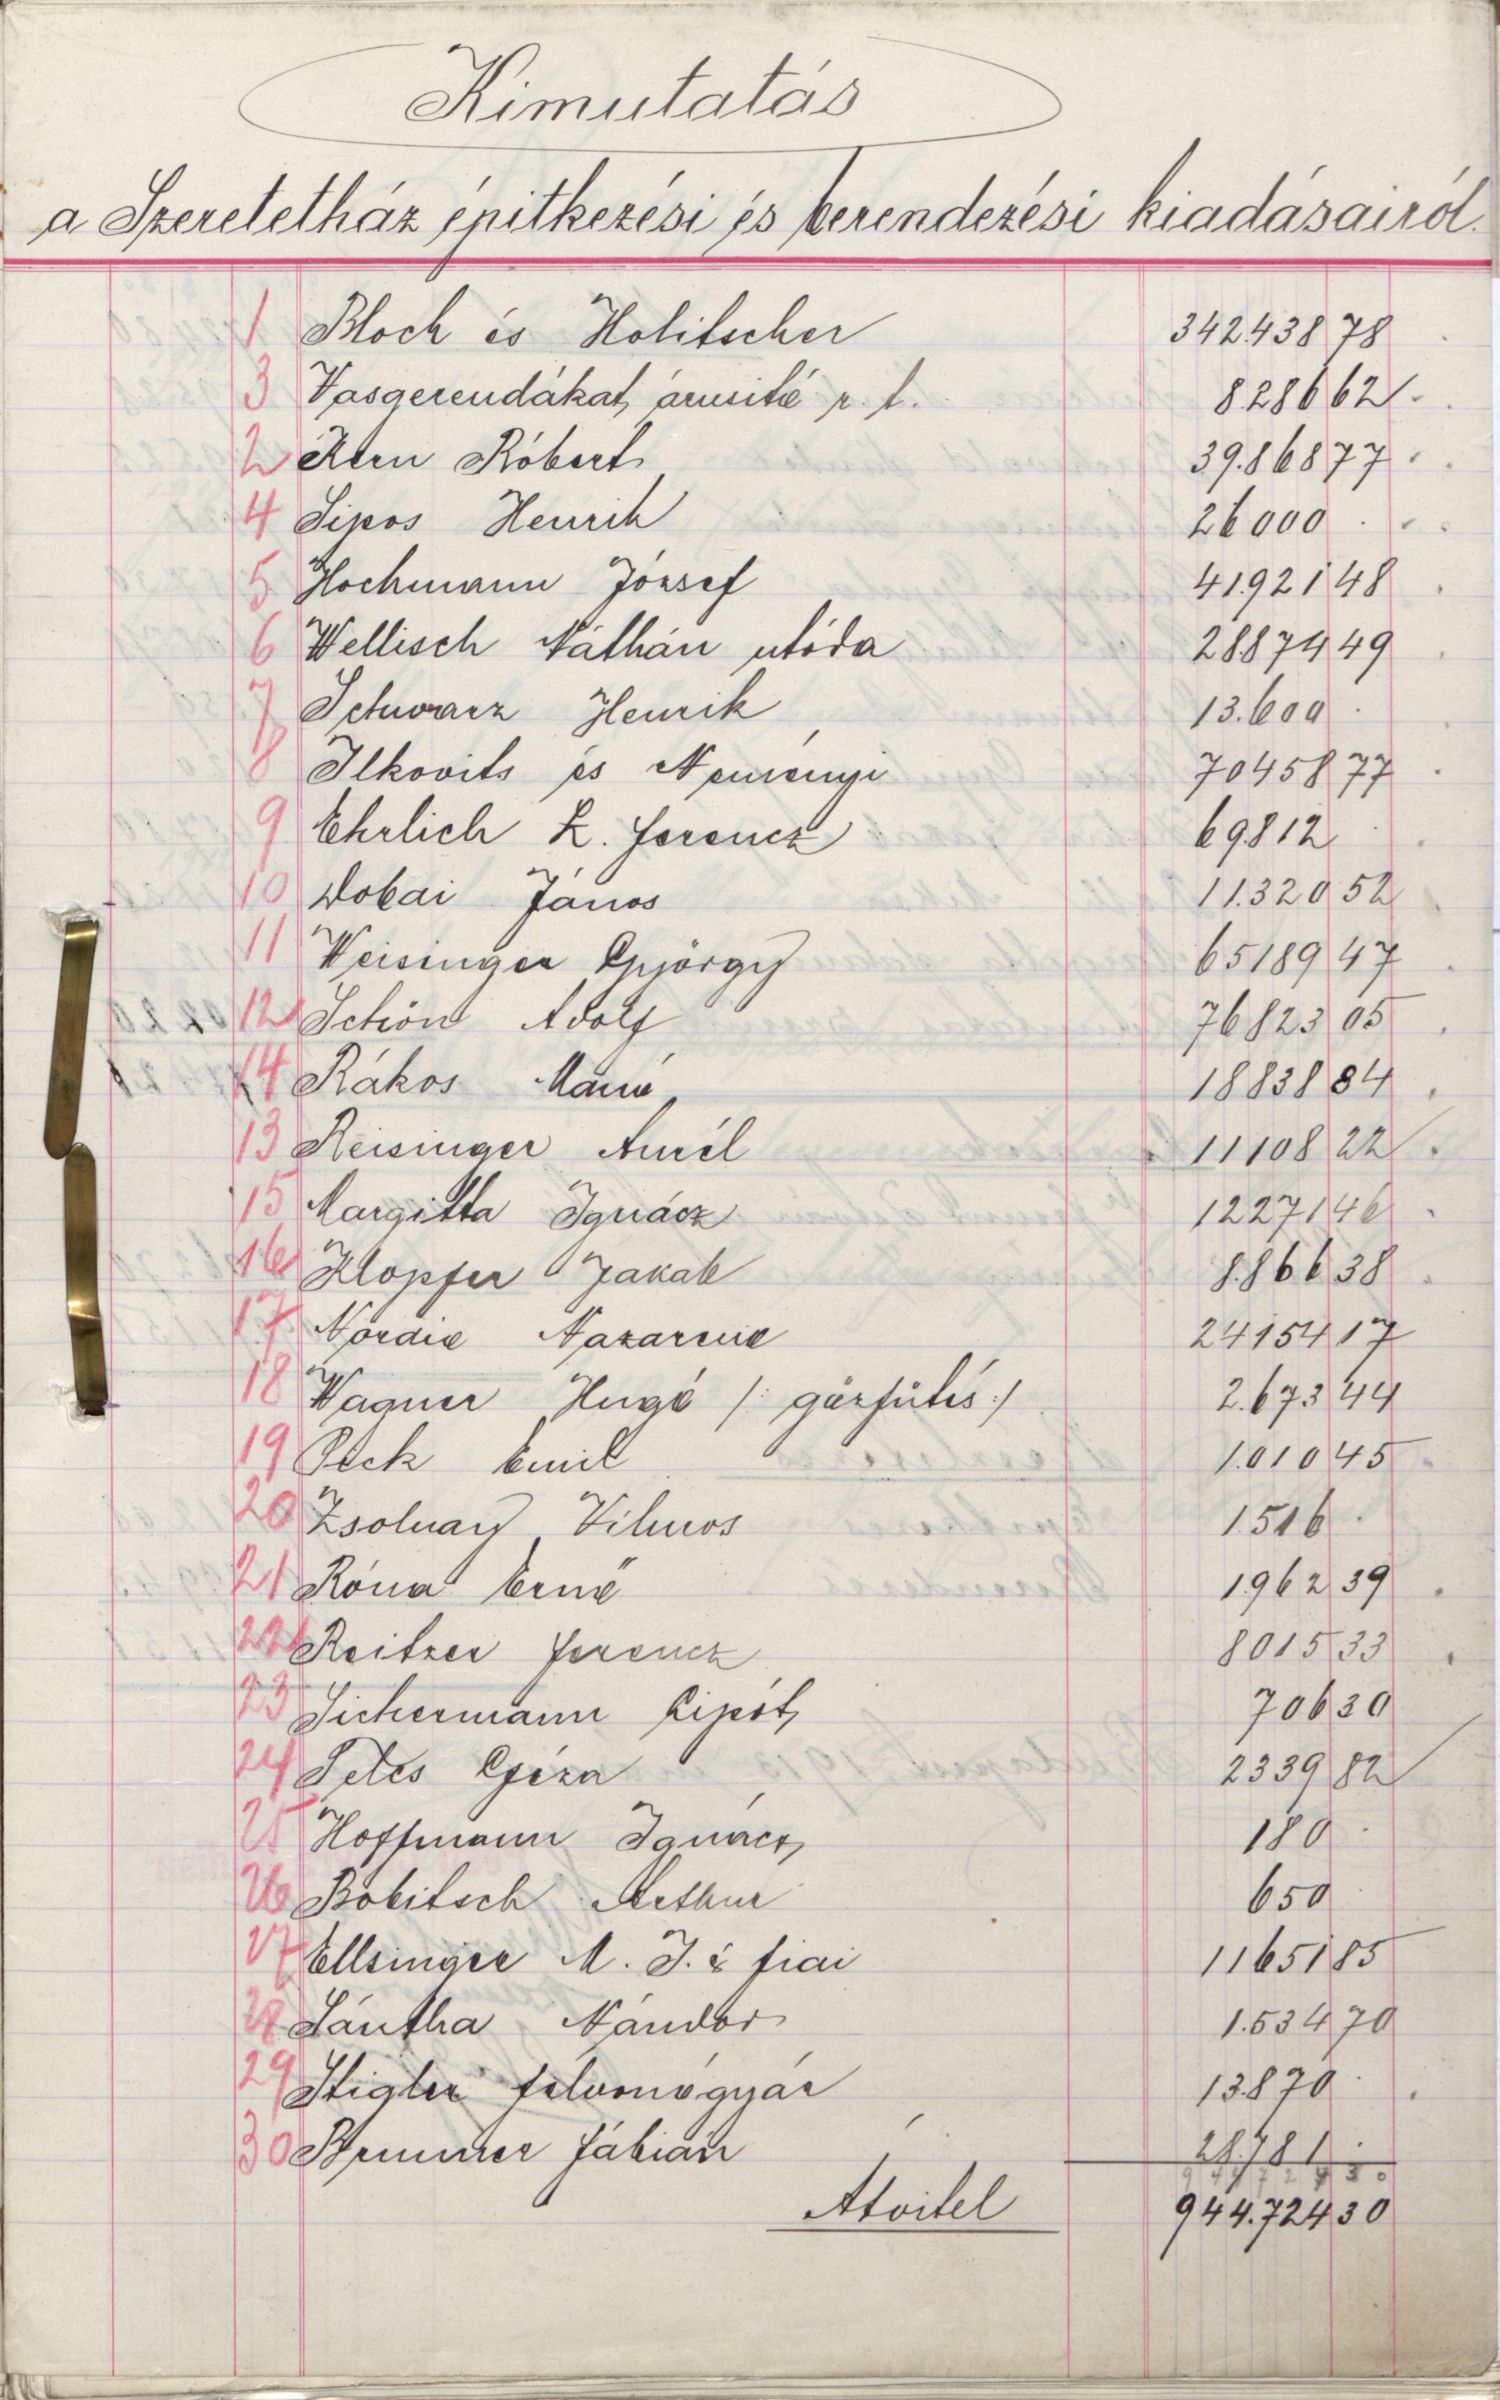 Kimutatás
a Szeretetház épitkezési és berendezési kiadásairól.
1 Bloch és Holitscher 342.438 78
3 Vasgerendákat árusító r. t. 8.286 62
2 Kern Róbert 39.868 77
4 Sipos Henrik 26000 .
5 Hochmann József 41.921 48
6 Wellisch Náthán utóda 28874 49
7 Schwarz Henrik 13.600 .
8 Ilkovits és Neményi 70458 77
9 Ehrlich L. Ferencz 69812 .
10 Dobai János 11.320 52
11 Weisinger György 65189 47
12 Schön Adolf 76823 05
14 Rákos Manó 18838 84
13 Reisinger Aurél 11108 22
15 Margitta Ignácz 12271 46
16 Klopfer Jakab 8.866 38
17 Nordio Nazareno 24154 17
18 Wagner Hugó /: gőzfütés :/ 2.673 44
19 Peck Emil 1.010 45
20 Zsolnay Vilmos 1.516 .
21 Róna Ernő 1962 39
22 Reitzer Ferencz 8015 33
23 Sichermann Lipót 706 30
24 Géza 2339 82
25 Hoffmann Ignácz 180 .
26 Bobitsch Arthur 650 .
27 Ellsinger M. J. & fiai 11651 85
28 Sántha Nándor 1.534 70
29 Stigler felvonógyár 13.870 .
30 Brunner Fábián 28.781 .
944724 30
Átvitel 944.724 30